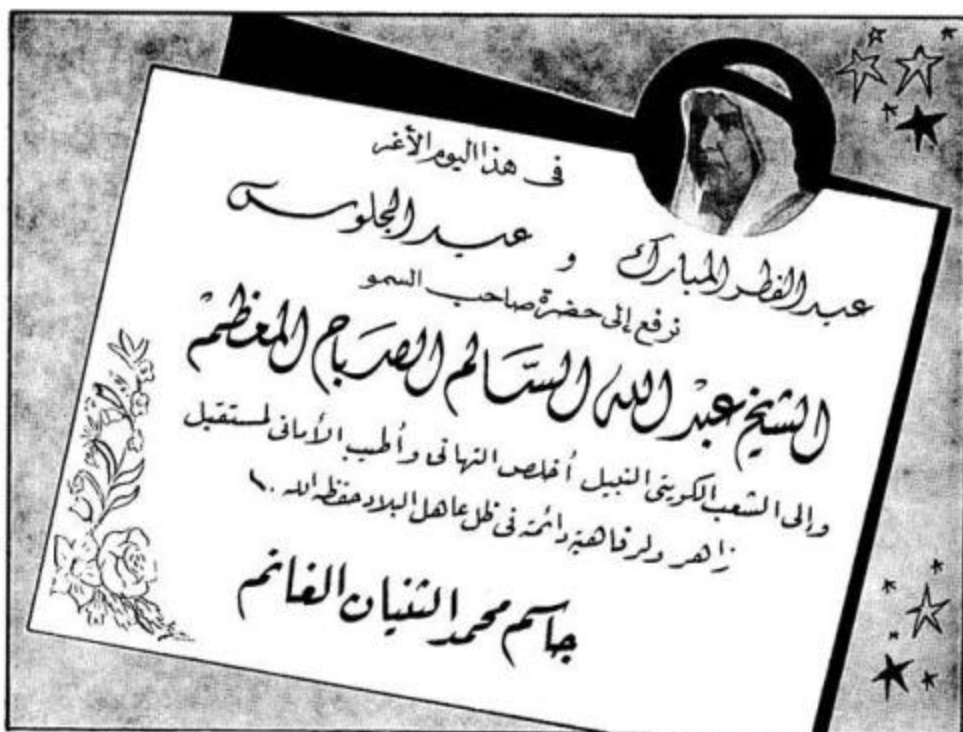 في هذا اليوم الأغر
عيد الفطر المبارك و عيد الجلوس
نرفع إلى حضرة صاحب السمو
الشيخ عبد الله السالم الصباح المعظم
وإلى الشعب الكويتي النبيل أخلص التهاني وأطيب الأماني لمستقبل
زاهر ولرفاهية دائمة في ظل عاهل البلاد حفظه الله ..
جاسم محمد الثنيان الغانم